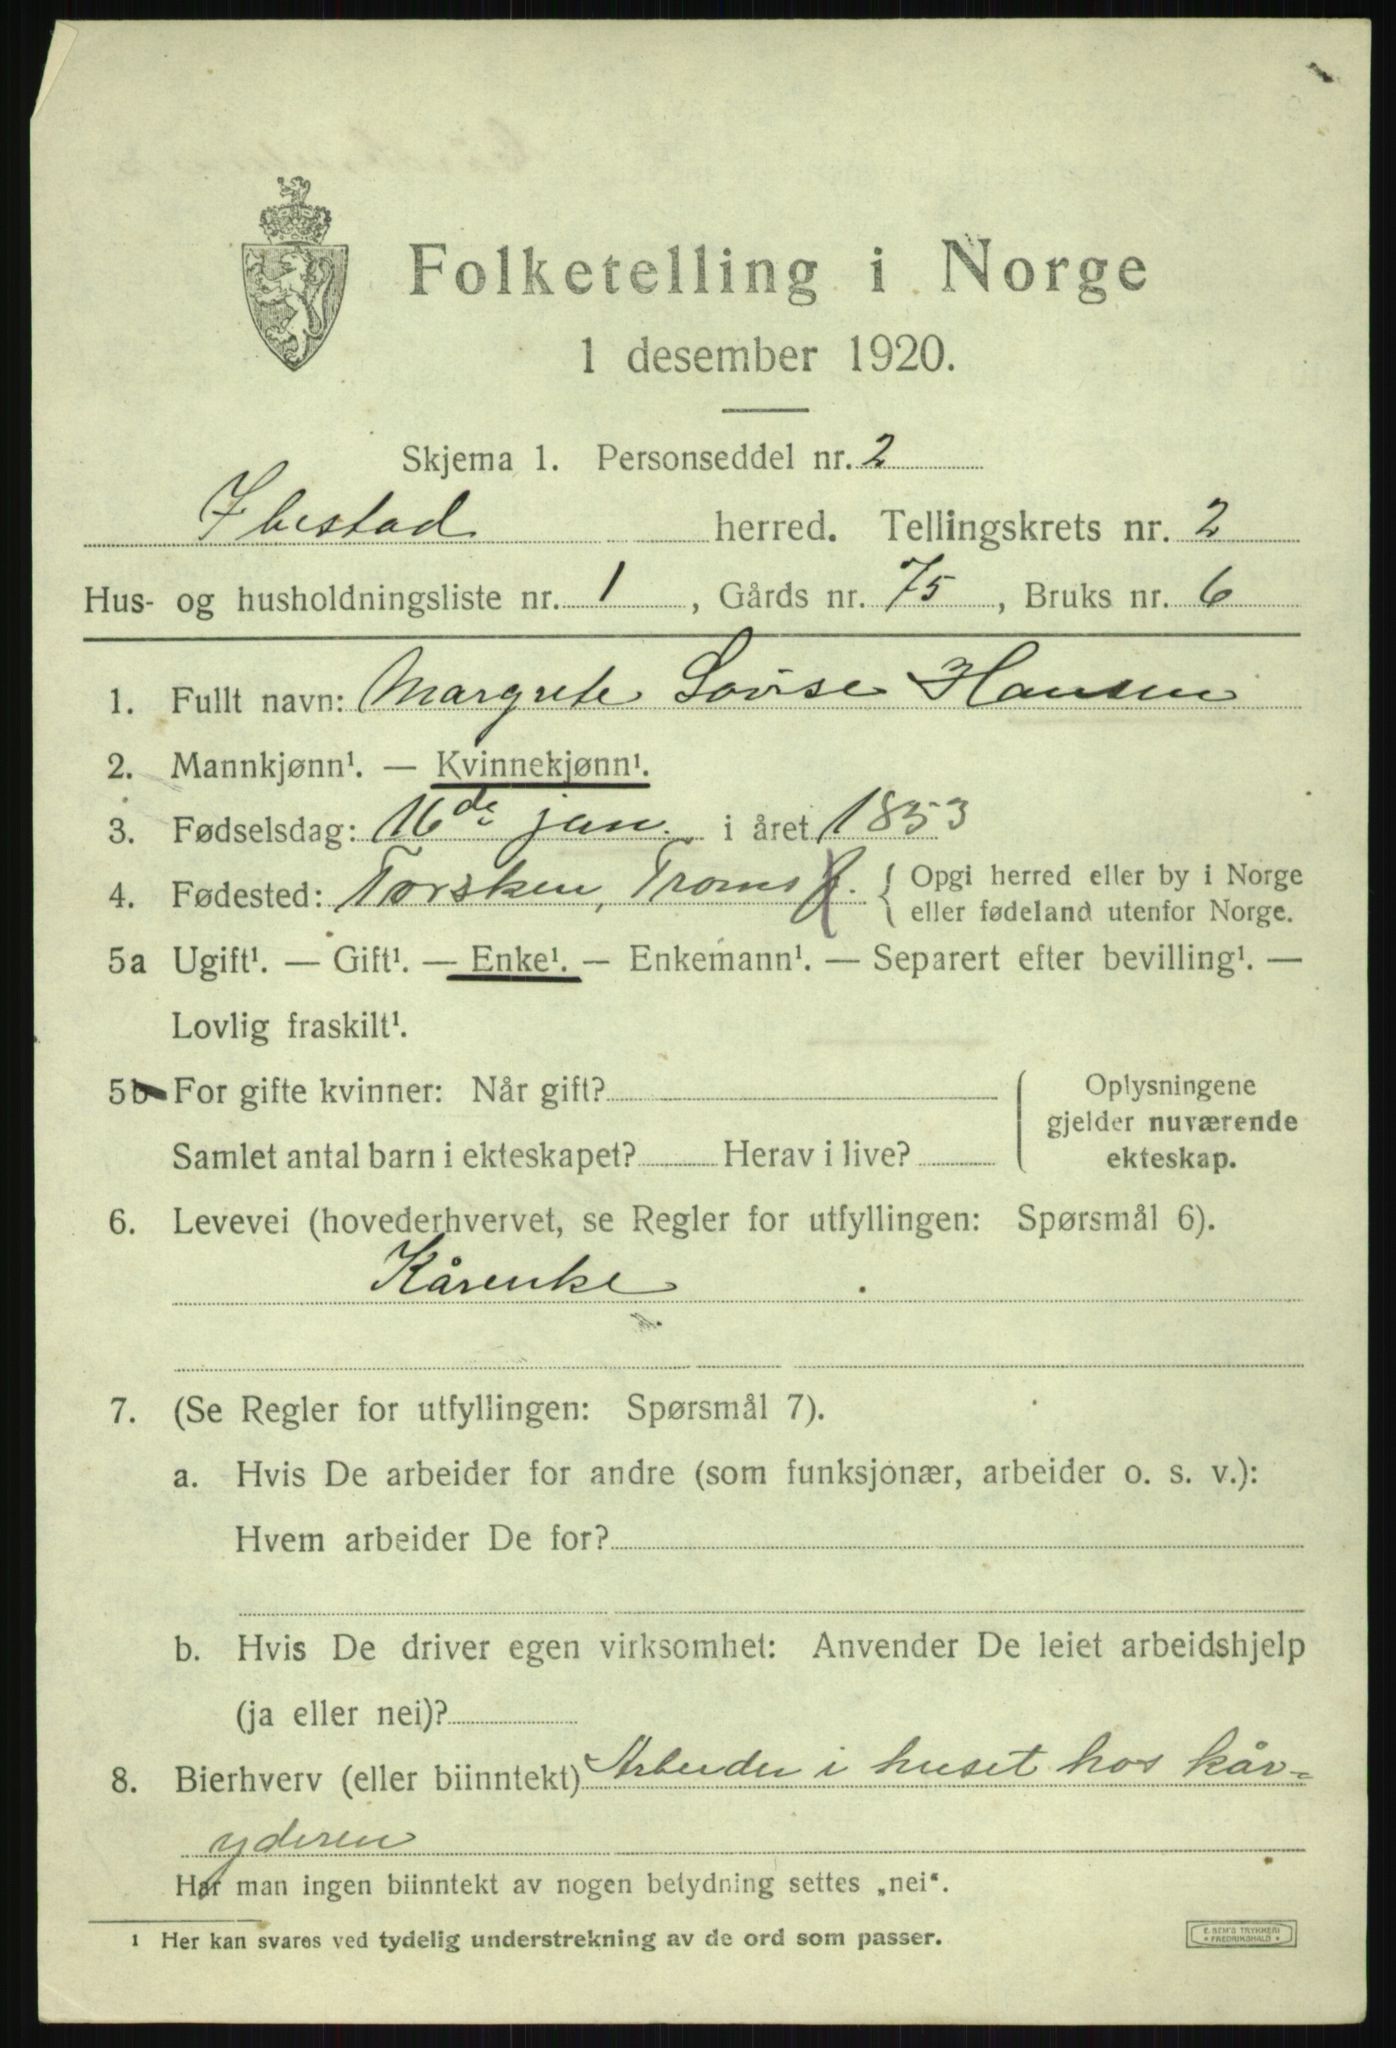 Folketelling i Norge
1 desember 1920.
Skjema 1. Personseddel nr. 2
Ibestad herred. Tellingskrets nr. 2
Hus- og husholdningsliste nr. 1, Gårds nr. 75, Bruks nr. 6
1. Fullt navn: Margrete Lovise Hansen
2. Mannkjønn¹. — Kvinnekjønn¹.
3. Fødselsdag: 16de jan. i året 1853
4. Fødested: Torsken, Troms { Opgi herred eller by i Norge
eller fødeland utenfor Norge.
5a Ugift¹. — Gift¹. — Enke¹. — Enkemann¹. — Separert efter bevilling¹. —
Lovlig fraskilt¹.
5b For gifte kvinner: Når gift?
Samlet antal barn i ekteskapet? Herav i live?
Oplysningene
gjelder nuværende
ekteskap.
6. Levevei (hovederhvervet, se Regler for utfyllingen: Spørsmål 6).
Kårenke
7. (Se Regler for utfyllingen: Spørsmål 7).
a. Hvis De arbeider for andre (som funksjonær, arbeider o. s. v.):
Hvem arbeider De for?
b. Hvis De driver egen virksomhet: Anvender De leiet arbeidshjelp
(ja eller nei)?
8. Bierhverv (eller biinntekt) Arbeider i huset hos kår-
yderen
Har man ingen biinntekt av nogen betydning settes „nei“.
¹ Her kan svares ved tydelig understrekning av de ord som passer.
E. SEM'S TRYKKERI
* FREDRIKSHALD *